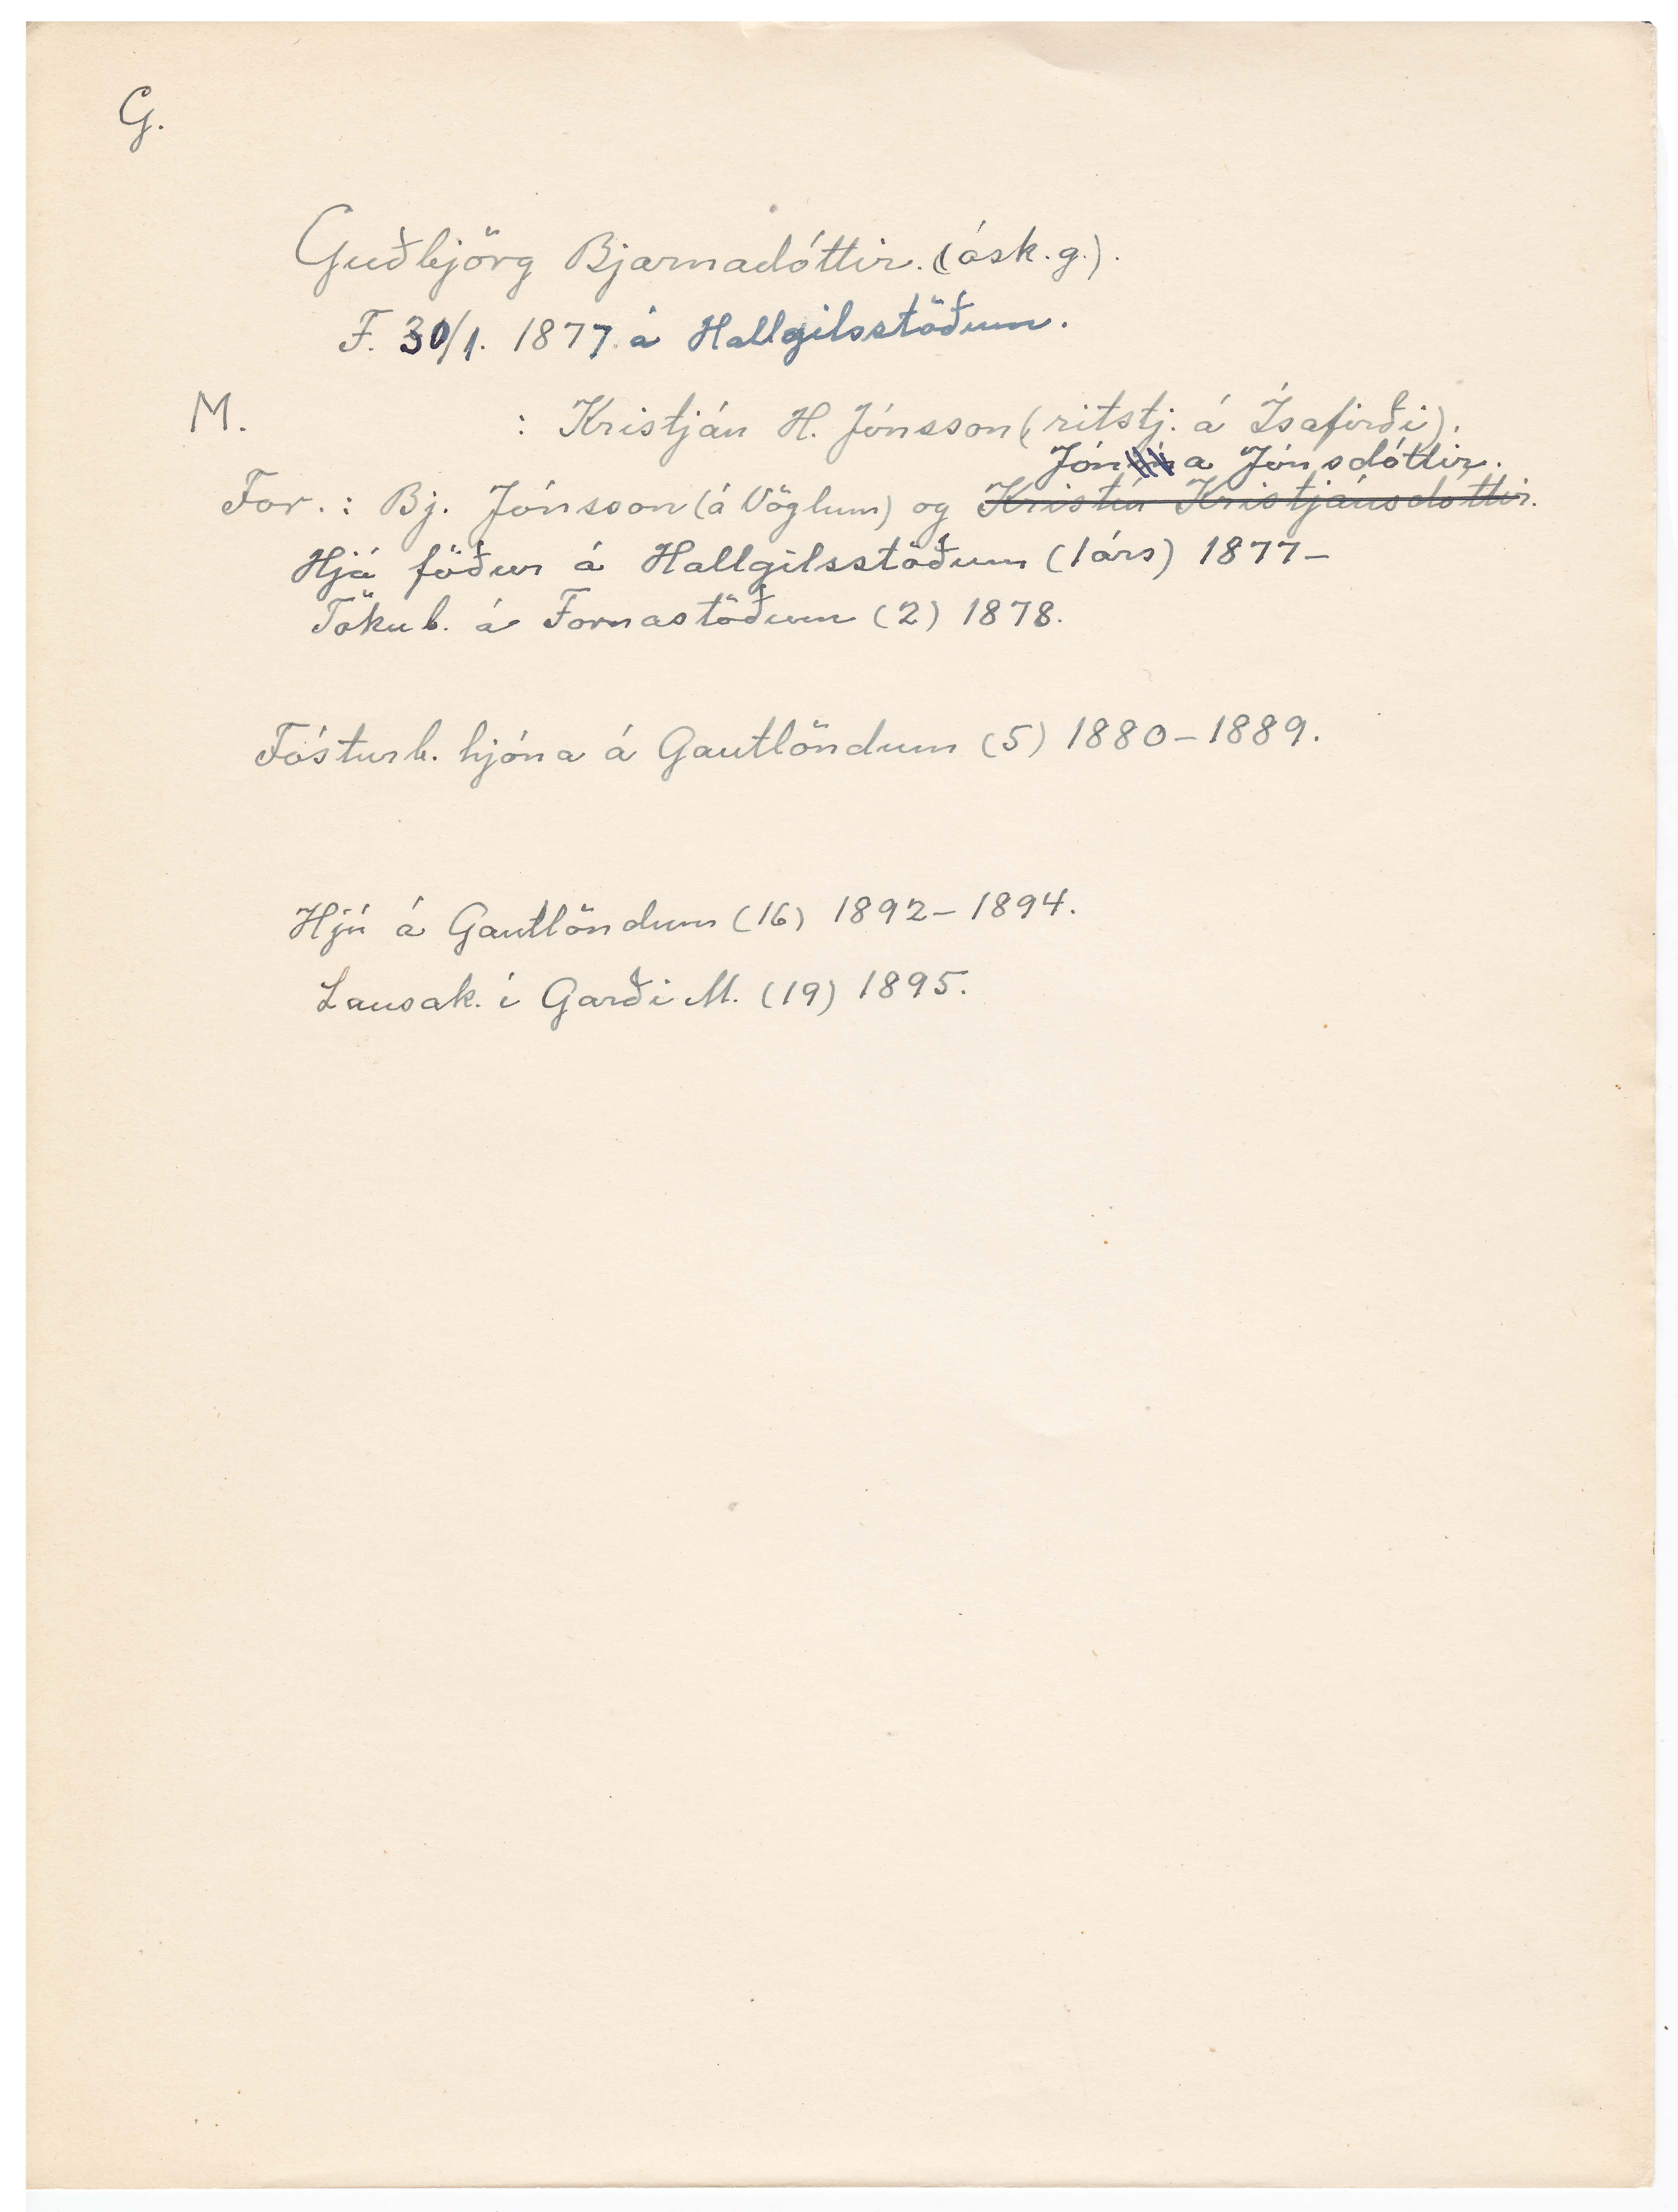 G.
Guðbjörg Bjarnadóttir. (ósk. g.).
F. 30/1. 1877. á Hallgilsstöðum.
M. : Kristján H. Jónsson (ritstj. á Ísafirði).
Jóna Jónsdóttir.
For. : Bj. Jónsson (á Vöglum) og Kristín Kristjánsdóttir.
Hjá föður á Hallgilsstöðum (1árs) 1877–
Tökub. á Fornastöðum (2) 1878.
Fósturb. hjóna á Gautlöndum (5) 1880–1889.
Hjú á Gautlöndum (16) 1892–1894.
Lausak. í Garði M. (19) 1895.